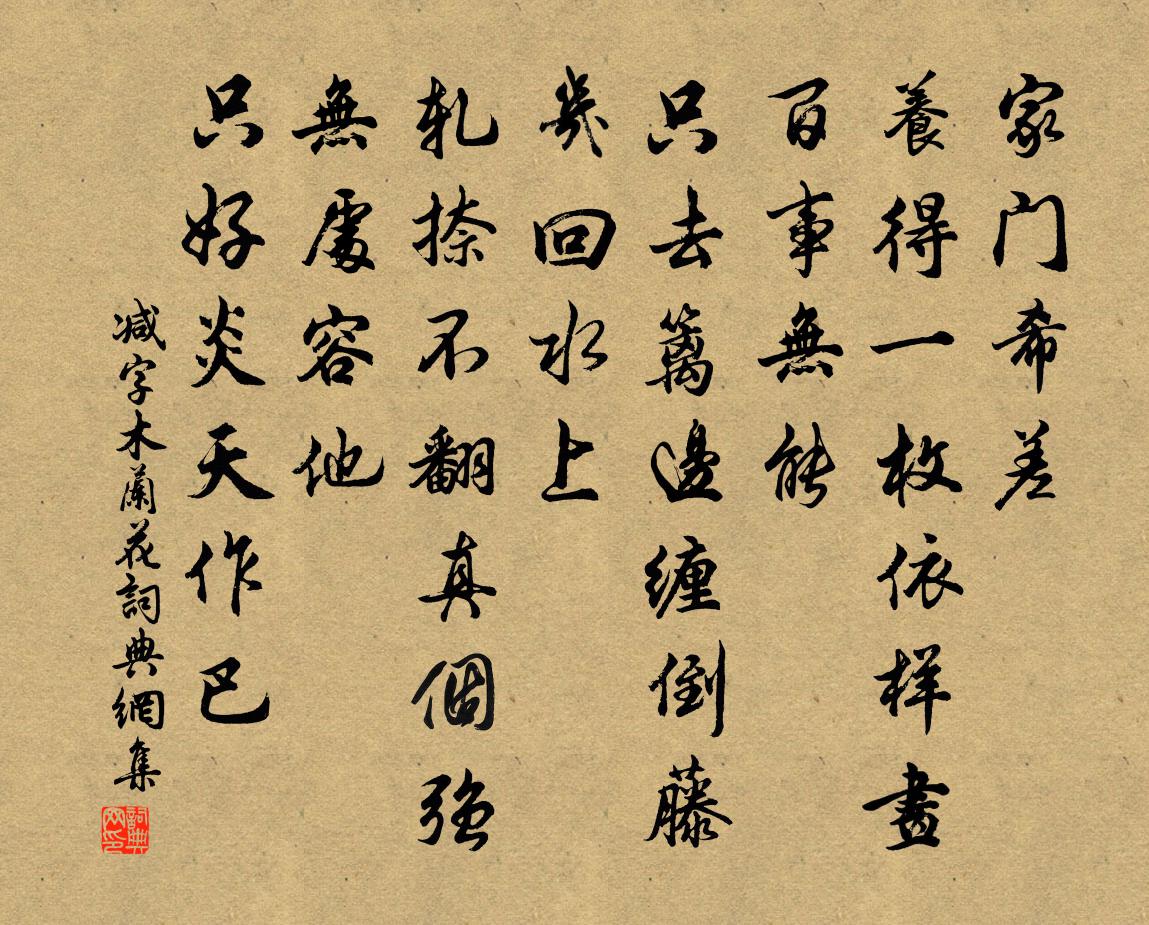 家门希差
養得一枚依样畫
百事無能
只去篱邊缠倒藤
幾回水上
軋捺不翻真個強
無處容他
只好炎天作巴
减字木蘭花詞典網集
詞典网印